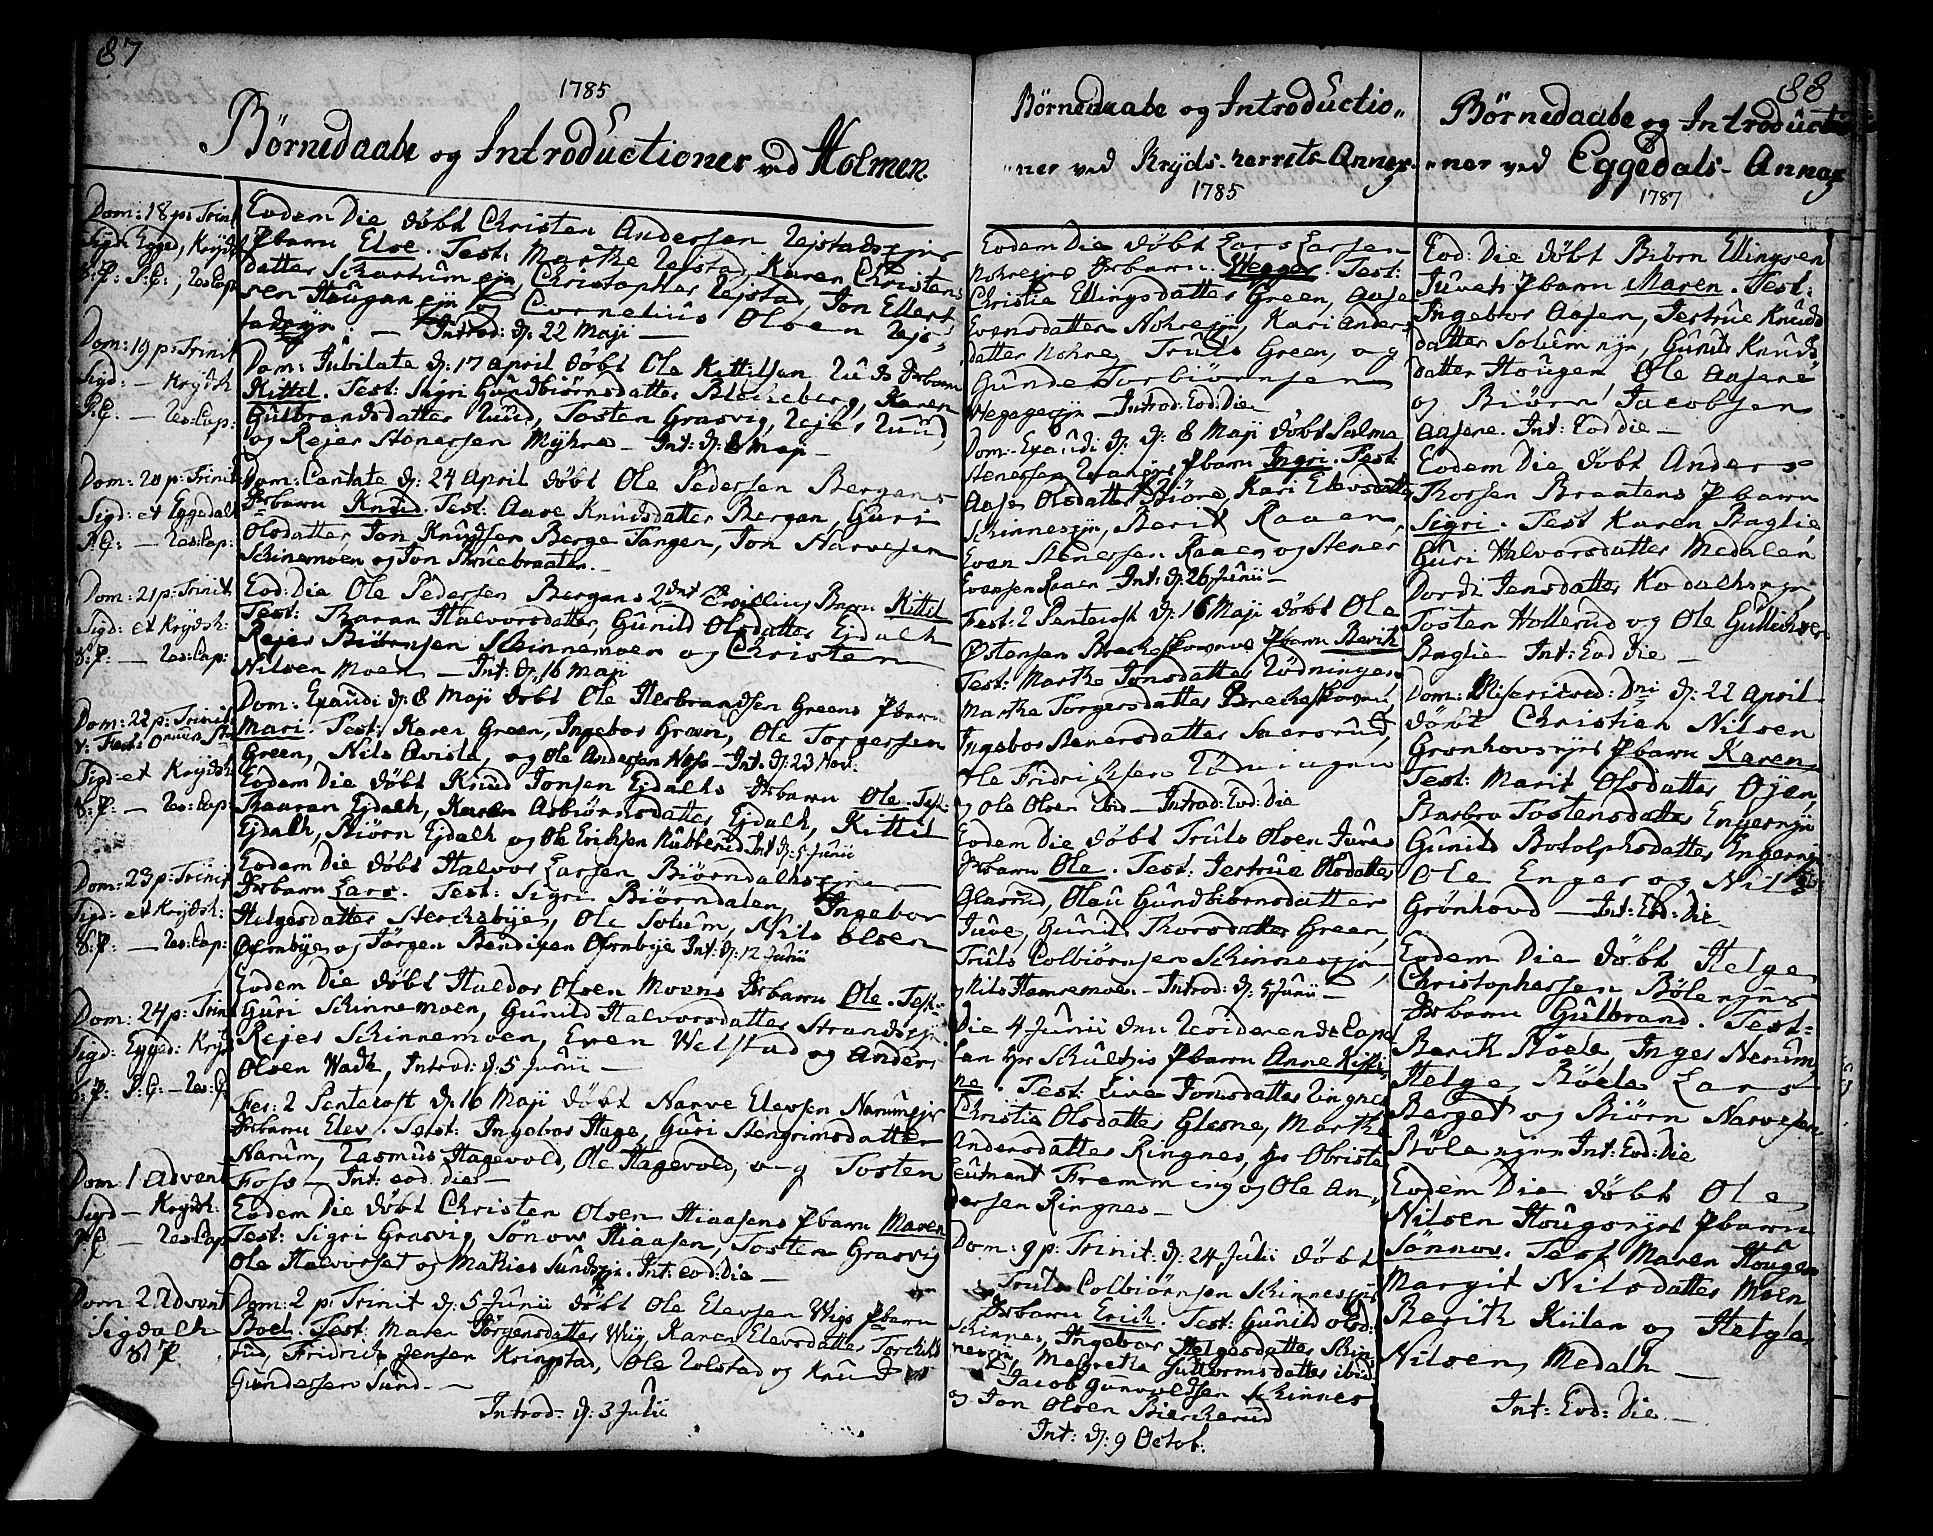 87
1785
Börnedaabe og Introductioner ved Holmen.
Dom: 18 p: Trinit
Sigd: Egged, Krydsh
S: P: P: C:, Res: Cap:
Dom: 19 p: Trinit
Sigd: — Krydsh
P: C: — Res: Cap:
Dom: 20 p: Trinit
Sigd: et Eggedalh
P: C: — Res: Cap:
Dom: 21 p: Trinit
Sigd: et Krydsh:
S: P: — Res: Cap:
Dom: 22 p: Trinit
Sigd: et Krydsh
S: P: — Res: Cap:
Dom: 23 p: Trinit
Sigd: et Krydsh:
S: P: — Res: Cap:
Dom: 24 p: Trinit
Sigd: Egged: Kryds
S: P: P: C: — Res: C
Dom: 1 Advent
Sigd — Krydsh:
P: C — Res: Cap
Dom 2 Advent
Sigdalh
S: P.
Eodem Die döbt Christen Andersen Rejstadsejrs
Pbarn Else. Test: Marthe Rejstad, Karen Christens
datter Skartum ejn, Christopher Rejstad, Jon Ellert
sen Hougan ejn og Cornelius Olsen Rejs-
tadejn. — Introd: d: 22 Maji —
Dom: Jubilate d: 17 April döbt Ole Kittilsen Ruds Drbarn
Kittil. Test: Sigri Gundbiörnsdatter Bleckeberg, Karen
Gulbrandsdatter Ruud, Tosten Grasvig, Rejer Ruud,
og Rejer Stenersen Myhre — Int: d: 8 Map —
Dom: Cantate d: 24 April döbt Ole Pedersen Bergans
Drbarn Knud. Test: Aase Knudsdatter Bergan, Guri
Olsdatter, Jon Knudsen Berge Tangen, Jon Narvesen
Skinemoen og Jon Skruebraaten. —
Eod: Die Ole Pedersen Bergans 2det Tvilling Barn Kittil
Test: Haran Halvorsdatter, Gunild Olsdatter Ejdalh
Rejer Biörnsen Skinnemoen og Christen
Nilsen Moen — Int: d: 16 Maji
Dom: Exaudi d: 8 Maji döbt Ole Herbrandsen Greens Pbarn
Mari. Test: Karen Green, Ingebor Green, Ole Torgersen
Green, Nils Qvisle, og Ole Andersen Ness — Int: d: 23 Nov:
Eodem Die döbt Knud Jonsen Ejdalhs Drbarn Ole. Test:
Haaran Ejdalh, Karen Asbiörnsdatter Ejdalh, Kittil
Ejdalh, Biörn Ejdalh og Ole Erichsen Kubberud Int d: 5 Junii
Eodem Die döbt Halvor Larsen Biörndalhsejner
Drbarn Lars. Test: Sigri Biörndalen, Ingebor
Helgesdatter Sterckebye, Ole Solum, Nils Olsen
Ofernbye og Jörgen Bendixen Ofernbye Int: d: 12 Junii
Eodem Die döbt Haldor Olsen Moens Drbarn Ole. Test:
Guri Skinnemoen, Gunild Halvorsdatter Strandsejn
Rejer Skinnemoen, Even Welstad og Anders
Olsen Wadh, Introd: d: 5 Junii —
Fer: 2 Pentecost d: 16 Maji döbt Narve Elevsen Narumsejr
Drbarn Elev. Test: Ingebor Hage, Guri Stengrimsdatter
Narum, Rasmus Hagevold, Ole Hagevold, og Tosten
Foss — Int: eod: die —
Eodem Die döbt Christen Olsen Hiaasens Pbarn Maren
Test: Sigri Grasvig, Sönow Hiaasen, Tosten Grasvig
Ole Halvorset og Mathies Sundsejn. Int: eod: die —
Dom: 2 p: Trinit d: 5 Junii döbt Ole Elevsen Wigs Pbarn
Boel. Test: Maren Jörgensdatter Wiig, Karen Elevsdatter Torchils
rud, Fridrich Jensen Kringstad, Ole Rolstad og Knud
Gundersen Sund. —
Introd: d: 3 Julii
Börnedaabe og Introductio-
-ner ved Kryds-herrets Annex
1785
Eodem Die döbt Lars Larsen
Nohresejns Drbarn Hegge. Test:
Christie Ellingsdatter Green, Aase
Evensdatter Nohresejn, Kari Anders
datter Nohre, Truls Green, og
Gunder Torbiörnsen
Hegagesejn — Introd: Eod: Die
Dom: Exaudi d: 8 Maji döbt Palme
Stenersen Raaejns Pbarn Ingri. Test
Aase Olsdatter Biöre, Kari Elevsdatter
Skinnesejn, Berit Raaen,
Even Stenersen Raaen og Stener
Evensen Raaen Int: d: 26 Junii —
Fest: 2 Pentecost d: 16 Maji döbt Ole
Östensen Breckeskovens Pbarn Berith
Test: Marthe Jonsdatter Rödningen
Marthe Torgersdatter Breckeskoven,
Ingebor Stenersdatter Snersrud,
Ole Fridrichsen Rödningen
og Ole Olsen Ibid — Introd: Eod: Die
Eodem Die döbt Truls Olsen Juves
Drbarn Ole. Test: Jertrue Olsdatter
Glesrud, Olau Gundbiörnsdatter
Juve, Gunild Thorsdatter Green,
Truls Colbiörnsen Skinnesejn
og Nils Hamremoen — Introd: d: 5 Junii —
Die 4 Junii den Residerende Capel
lan Hr Schultzis Pbarn Anne Kisti-
ne. Test: Live Jonsdatter Ringnes
Christie Olsdatter Glesne, Marthe
Andersdatter Ringnes, Hr Obriste
Leutnant Fremming og Ole An-
dersen Ringnes —
Dom: 9 p: Trinit: d: 24 Julii döbt
Truls Colbiörnsen Skinnesejns
Drbarn Erich. Test: Gunild Olsd:
Skinnes, Ingebor Helgesdatter Skin
nesejn, Megretha Guttormsdatter ibid
Jacob Gunvoldsen Skinnes
og Jon Olsen Bierckerud
Int: d: 9 Octob:
88
Börnedaabe og Introductio
-ner ved Eggedals-Annex
1787
Eod: Die döbt Biörn Ellingsen
Juveh Pbarn Maren. Test:
Ingebor Aasen, Jertrue Knuds
datter Solumejn, Gunild Knuds
datter Hougen Ole Aasene
og Biörn Jacobsen
Aasene. Int: Eod die —
Eodem Die döbt Anders
Thorsen Braatens Pbarn
Sigri. Test Karen Baglie
Guri Halvorsdatter Medalen
Dordi Jensdatter Kodalhsejn
Tosten Hollerud og Ole Gullichsen
Baglie Int: Eod Die —
Dom: Misericord: Dni d: 22 April
döbt Christian Nilsen
Grønhovsejrs Pbarn Karen
Test: Marit Olsdatter Öyen,
Barbro Tostensdatter Engerejn
Gunild Botolphsdatter Engerejn
Ole Enger og Nils
Grönhovd — Int: Eod: Die —
Eodem Die döbt Helge
Christophersen Bölensejns
Drbarn Gulbrand. Test:
Berith Böele, Inger Nerum,
Helge Böele Lars
Berget og Biörn Narvesen
Böleejn Int: Eod: Die
Eodem Die döbt Ole
Nilsen Hougsejns Pbarn
Sönnov. Test Maren Hougen
Margit Nilsdatter Moen
Berith Kiilen og Helge
Nilsen, Medalh —
Int: Eod: Die —